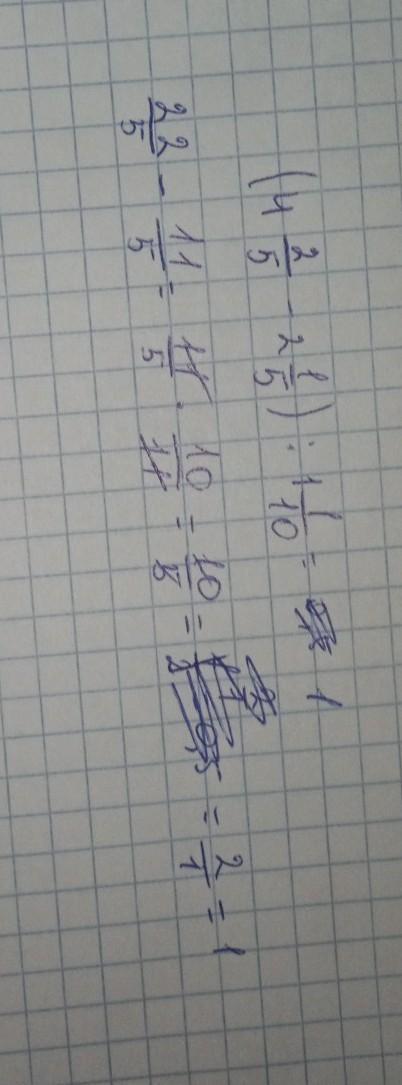 (4 2/5 - 2 1/5) : 1 1/10 = 1
22/5 - 11/5 = 11/5 · 10/11 = 10/5 = = 2/1 = 1